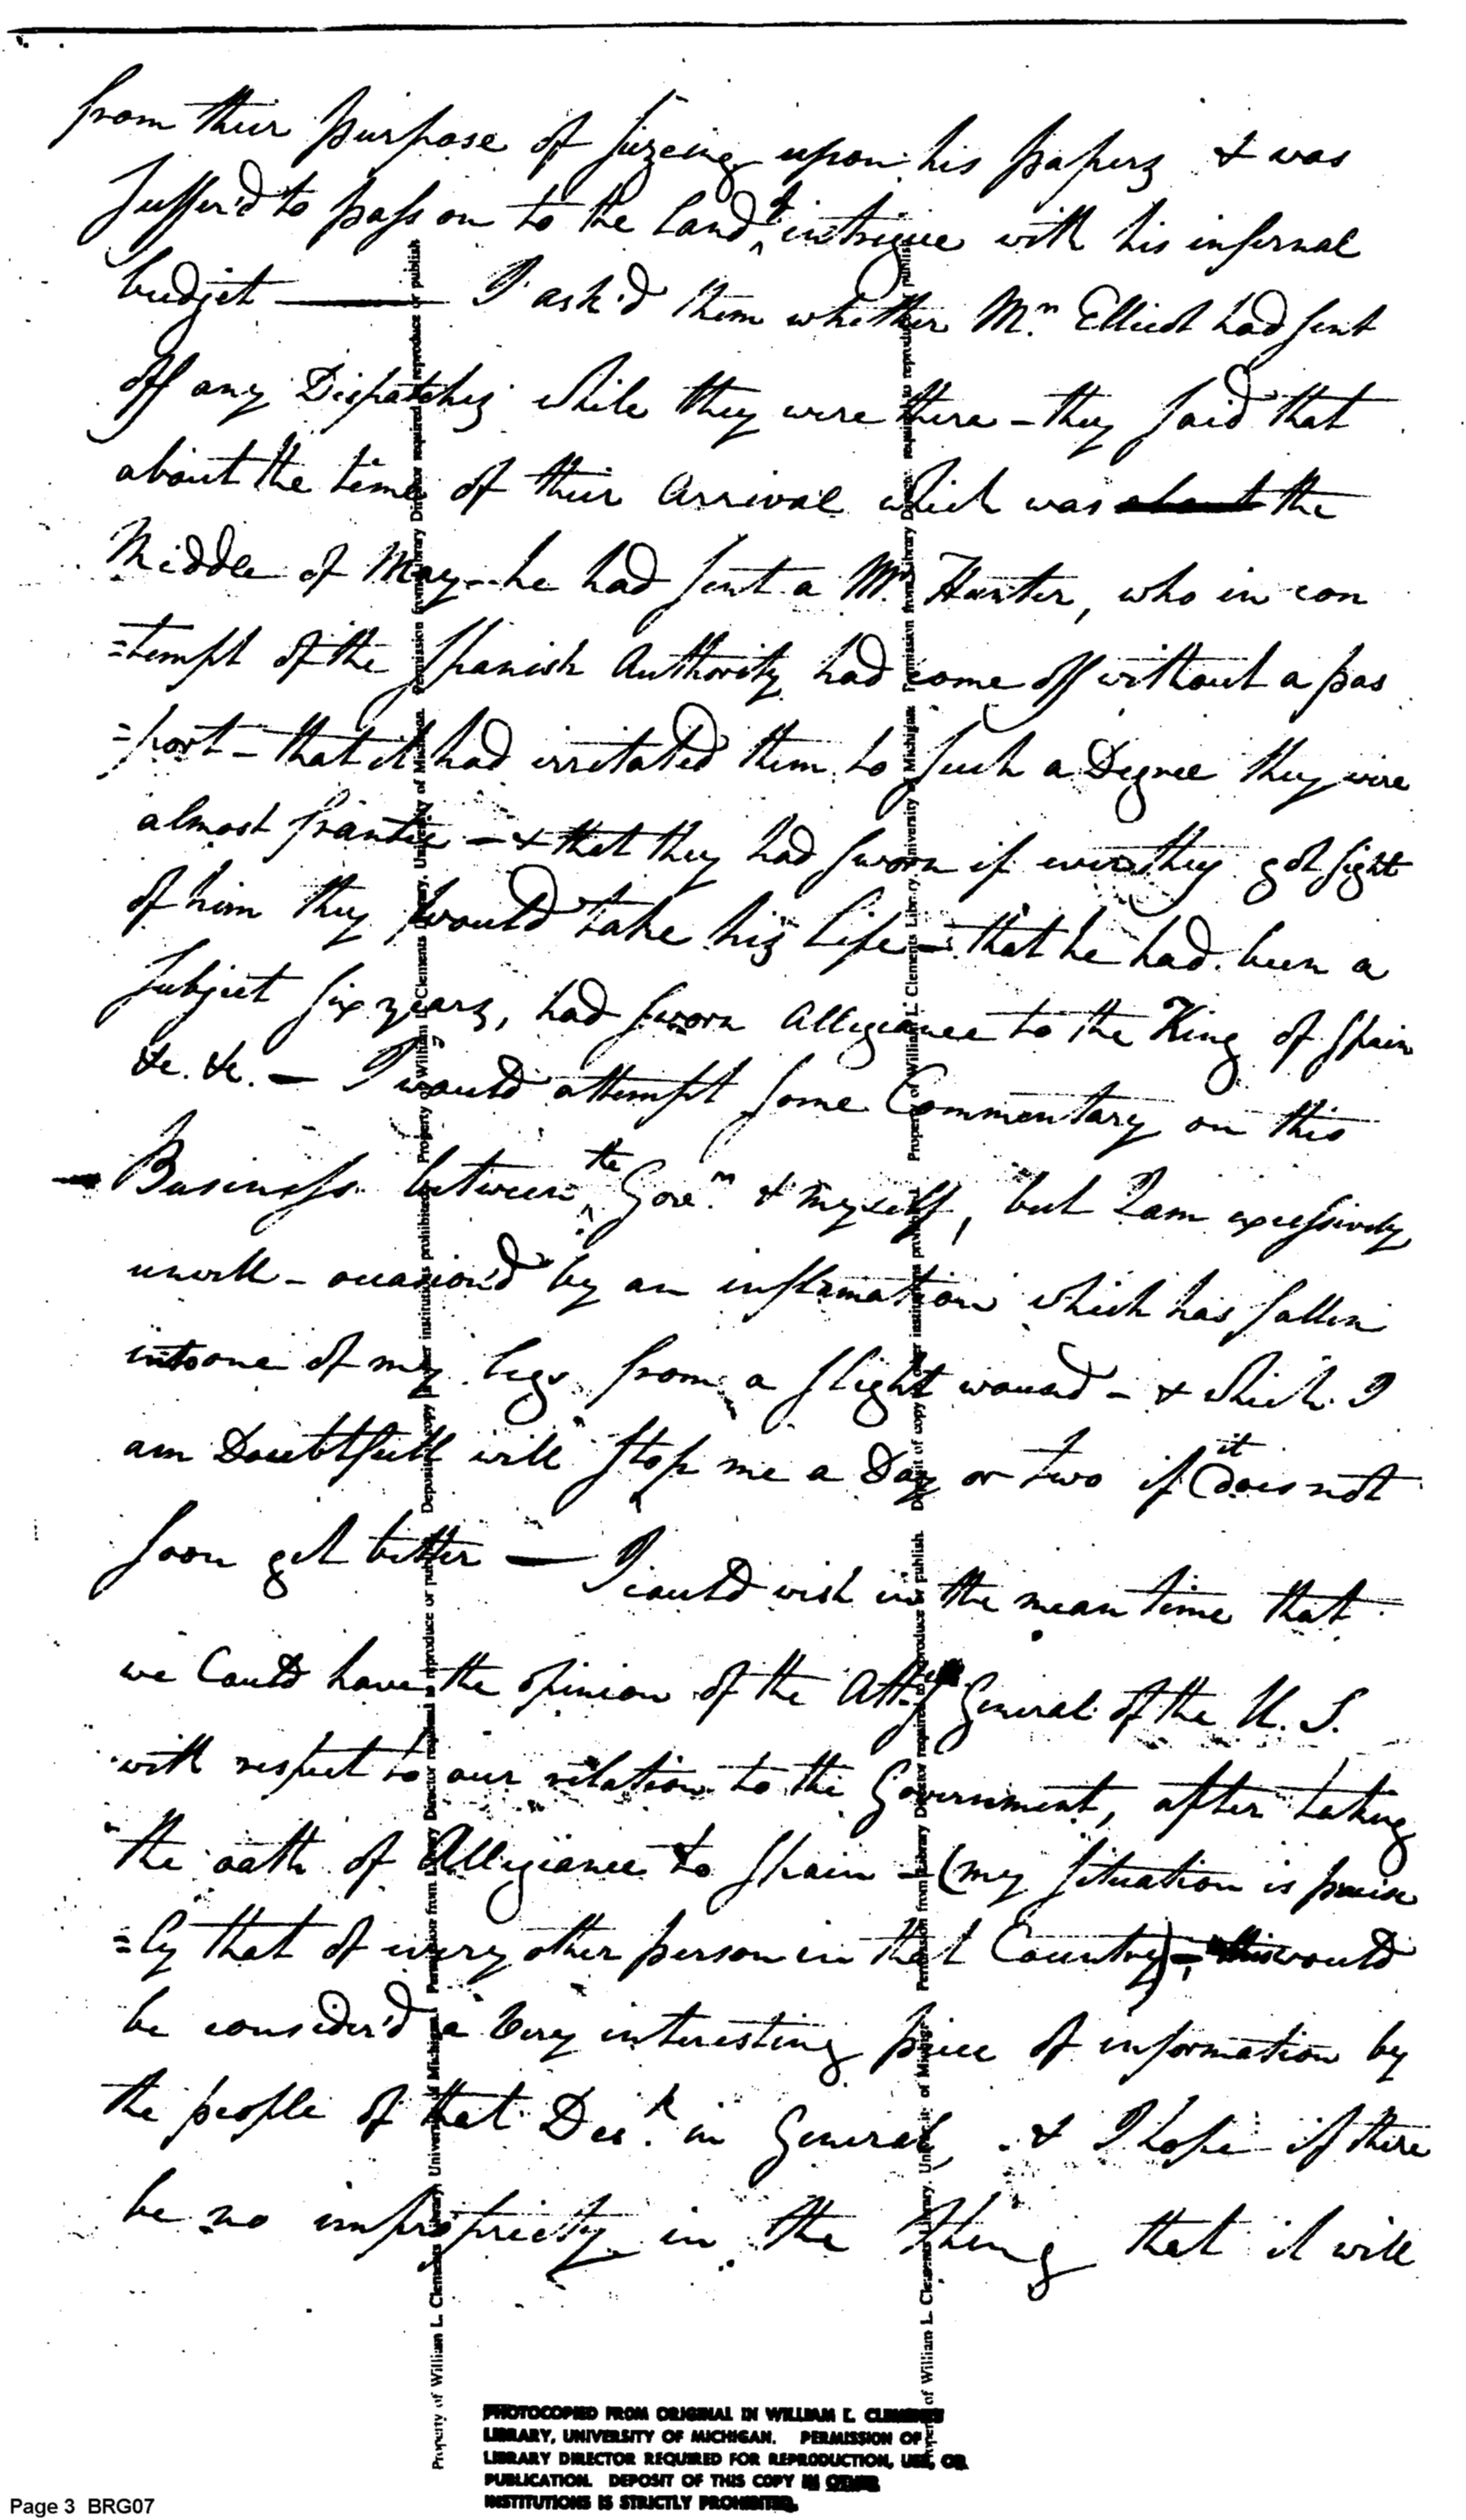 from their purpose of siezeing upon his papers & was
suffer'd to pass on to the Land of intrigue with his infernal
budjet — I ask'd them whether Mr. Ellicot had sent
off any Dispatches while they were there – they said that
about the time of their Arrival which was about the
Middle of May – he had sent a Mr. Hunter, who in con
=tempt of the Spanish Authority had come off without a pas
=port – that it had irritated them to such a Degree they were
almost frantic – & that they had sworn if ever they got sight
of him they would take his life – that he had been a
subject six years, had sworn allegiance to the King of Spain
&c. &c. — I would attempt some Commentary on this
Business between the Govr. & myself, but I am excessively
unwell – occasion'd by an inflamation which has fallen
into one of my legs from a slight wound – & which I
am Doubtfull will stop me a Day or two if it does not
soon get better — I could wish in the mean time that
we Could have the opinion of the Atty General of the U. S.
with respect to our relation to the Government, after taking
the oath of Allegiance to Spain – (my situation is precise
=ly that of every other person in that Country) – this would
be consider'd a Very interesting piece of information by
the people of that Des.t in General, & I hope if there
be no impropriety in the thing that it will
Property of William L. Clements Library, University of Michigan. Permission from Library Director required to reproduce or publish. Deposit of copy in other institutions prohibited. Property of William L. Clements Library, University of Michigan. Permission from Library Director required to reproduce or publish
Property of William L. Clements Library, University of Michigan. Permission from Library Director required to reproduce or publish. Deposit of copy in other institutions prohibited. Property of William L. Clements Library, University of Michigan. Permission from Library Director required to reproduce or publish
PHOTOCOPIED FROM ORIGINAL IN WILLIAM L. CLEMENTS
LIBRARY, UNIVERSITY OF MICHIGAN. PERMISSION OF
LIBRARY DIRECTOR REQUIRED FOR REPRODUCTION, USE, OR
PUBLICATION. DEPOSIT OF THIS COPY IN OTHER
INSTITUTIONS IS STRICTLY PROHIBITED.
Page 3 BRG07